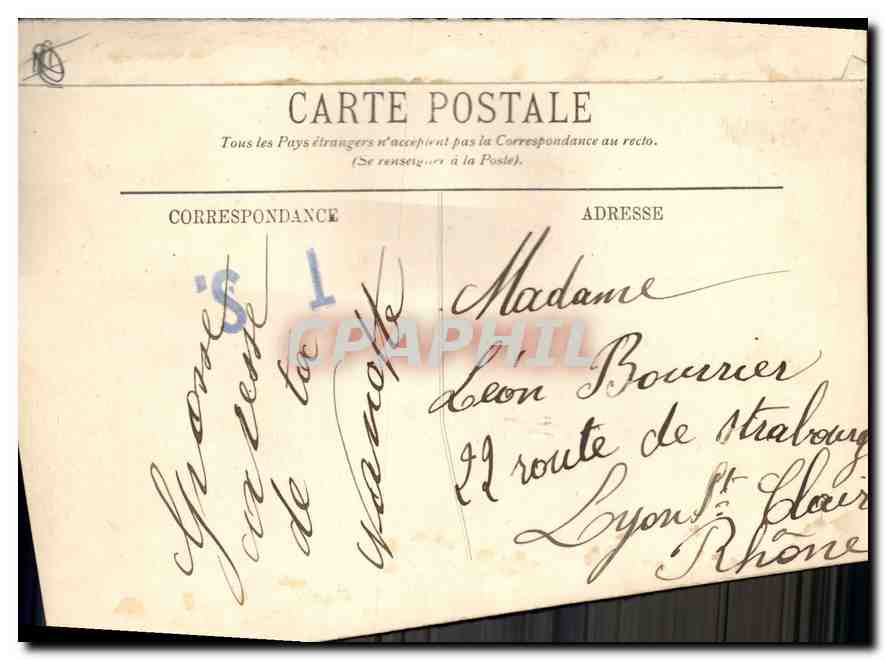 CARTE POSTALE
Tous les Pays étrangers n'acceptent pas la Correspondance au recto.
(Se renseigner à la Poste).
CORRESPONDANCE
ADRESSE
Grosse
caresse
de ta
S. 1
CPAPHIL
Madame
Léon Bourrier
22 route de strabourg
Lyon St Clair
Rhône